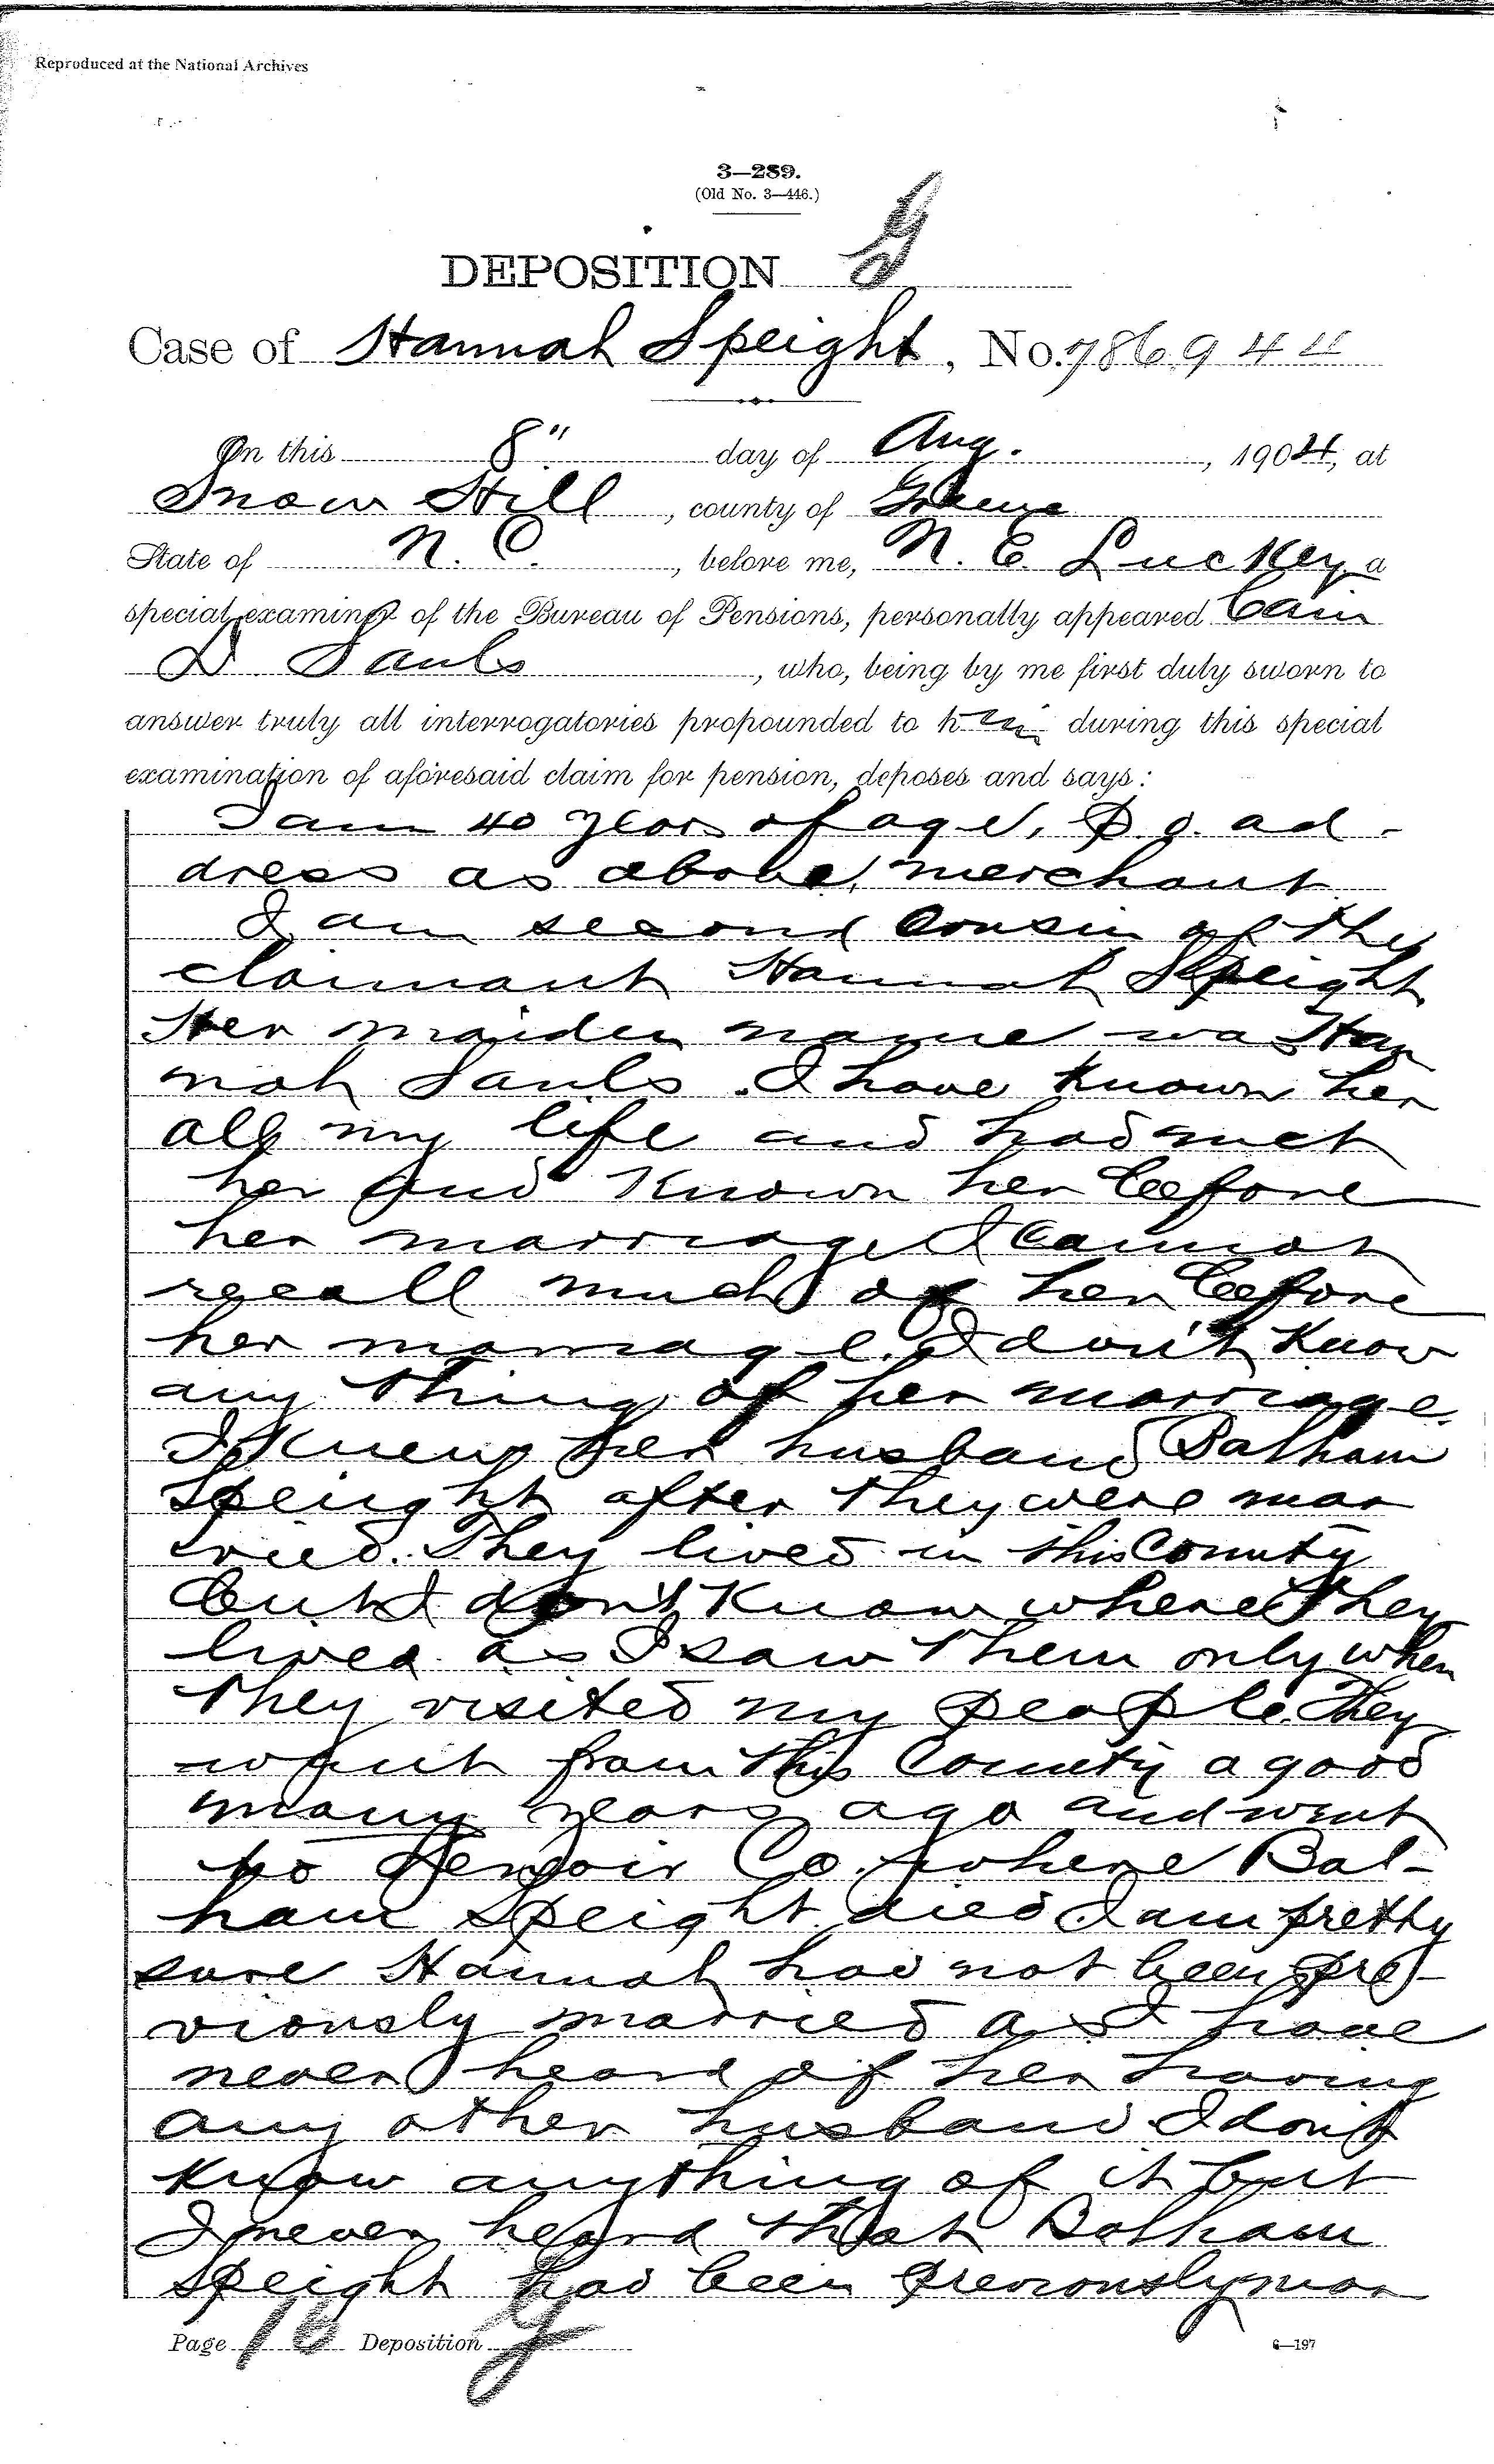 Reproduced at the National Archives
3—289.
(Old No. 3—446.)
DEPOSITION G
Case of Hannah Speight, No. 786944
On this 8" day of Aug., 1904, at
Snow Hill, county of Greene
State of N. C., before me, N. E. Luckey a
special examiner of the Bureau of Pensions, personally appeared Cain
D. Sauls, who, being by me first duly sworn to
answer truly all interrogatories propounded to him during this special
examination of aforesaid claim for pension, deposes and says:
I am 40 years of age, P. O. ad-
dress as above, merchant
I am second cousin of the
claimant Hannah Speight
Her maiden name was Han
nah Sauls. I have known her
all my life and had met
her and known her before
her marriage I cannot
recall much of her before
her marriage. I don't know
any thing of her marriage.
I knew her husband Balham
Speight after they were mar
ried. They lived in this County
but I don't know where they
lived as I saw them only when
they visited my people. They
went from this County a good
many years ago and went
to Lenoir Co. where Bal-
ham Speight died I am pretty
sure Hannah had not been pre-
viously married as I have
never heard of her having
any other husband I don't
know anything of it but
I never heard that Balham
Speight had been previously mar
Page 16 Deposition G
6—197